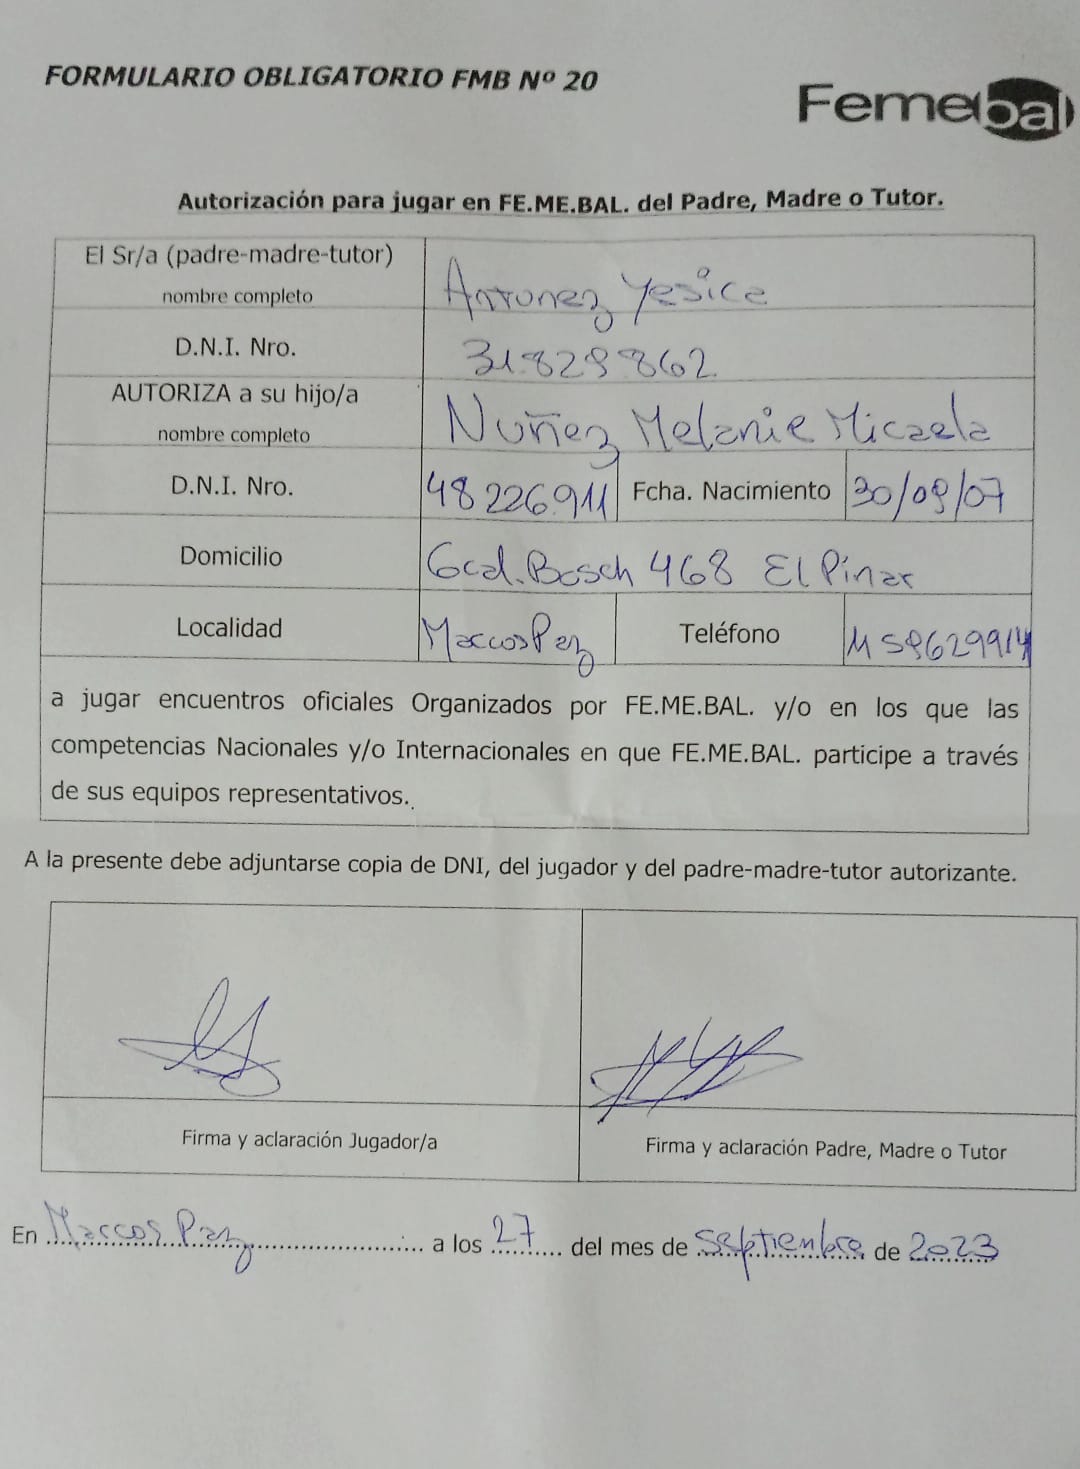 FORMULARIO OBLIGATORIO FMB Nº 20
Femebal
Autorización para jugar en FE.ME.BAL. del Padre, Madre o Tutor.
El Sr/a (padre-madre-tutor)
nombre completo
Antunez Yesica
D.N.I. Nro.
31.829.862
AUTORIZA a su hijo/a
nombre completo
Nuñez Melanie Micaela
D.N.I. Nro.
48226.911
Fcha. Nacimiento
30/09/07
Domicilio
Gral. Bosch 468 El Pinar
Localidad
Marcos Paz
Teléfono
1159629914
a jugar encuentros oficiales Organizados por FE.ME.BAL. y/o en los que las
competencias Nacionales y/o Internacionales en que FE.ME.BAL. participe a través
de sus equipos representativos..
A la presente debe adjuntarse copia de DNI, del jugador y del padre-madre-tutor autorizante.
Firma y aclaración Jugador/a
Firma y aclaración Padre, Madre o Tutor
En Marcos Paz a los 27 del mes de Septiembre de 2023